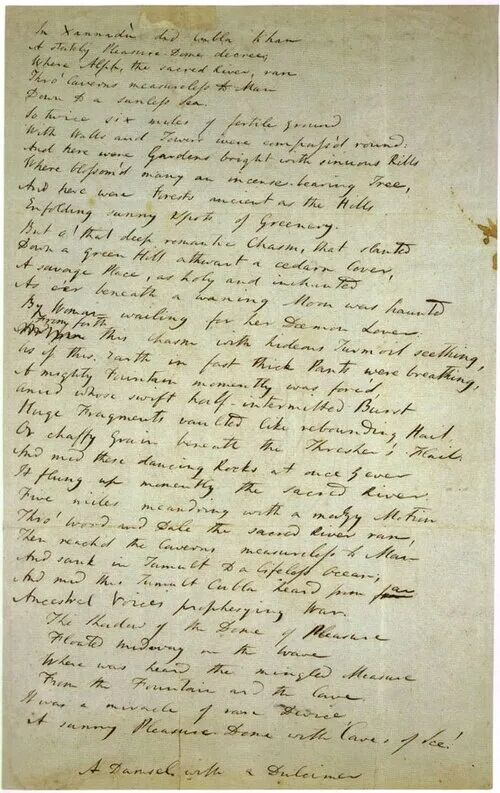 In Xannadù did Cubla Khan
A stately Pleasure-Dome decree;
Where Alph, the sacred River, ran
Thro' Caverns measureless to Man
Down to a sunless Sea.
So twice six miles of fertile ground
With Walls and Towers were compass'd round:
And here were Gardens bright with sinuous Rills
Where blossom'd many an incense-bearing Tree,
And here were Forests ancient as the Hills
Enfolding sunny Spots of Greenery.
But o! that deep romantic Chasm, that slanted
Down a green Hill athwart a cedarn Cover,
A savage Place, as holy and inchanted
As e'er beneath a waning Moon was haunted
By Woman wailing for her Daemon Lover:
From forth this Chasm with hideous Turmoil seething,
As if this Earth in fast thick Pants were breathing,
A mighty Fountain momently was forc'd,
Amid whose swift half-intermitted Burst
Huge Fragments vaulted like rebounding Hail,
Or chaffy Grain beneath the Thresher's Flail.
And mid these dancing Rocks at once & ever
It flung up momently the sacred River.
Five miles meandring with a mazy Motion
Thro' Wood and Dale the sacred River ran,
Then reach'd the Caverns measureless to Man
And sank in Tumult to a lifeless Ocean;
And mid this Tumult Cubla heard from far
Ancestral Voices prophesying War.
The Shadow of the Dome of Pleasure
Floated midway on the Wave
Where was heard the mingled Measure
From the Fountain and the Cave.
It was a miracle of rare Device
A sunny Pleasure-Dome with Caves of Ice!
A Damsel with a Dulcimer